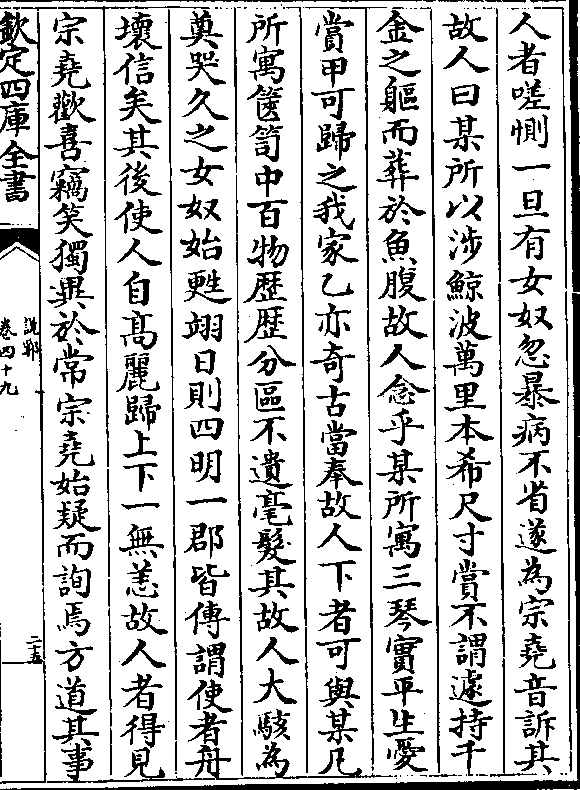 人者嗟惻一旦有女奴忽暴病不省遂為宗堯音訴其
故人曰某所以涉鯨波萬里本希尺寸賞不謂遽持千
金之軀而葬於魚腹故人念乎某所寓三琴實平生愛
賞甲可歸之我家乙亦奇古當奉故人下者可與某凡
所寓篋笥中百物歴歴分區不遺毫髮其故人大駭為
奠哭久之女奴始甦翊日則四明一郡皆傳謂使者舟
壞信矣其後使人自髙麗歸上下一無恙故人者得見
宗堯歡喜竊笑獨異於常宗堯始疑而詢焉方道其事
欽定四庫全書
說郛
卷四十九
二十五